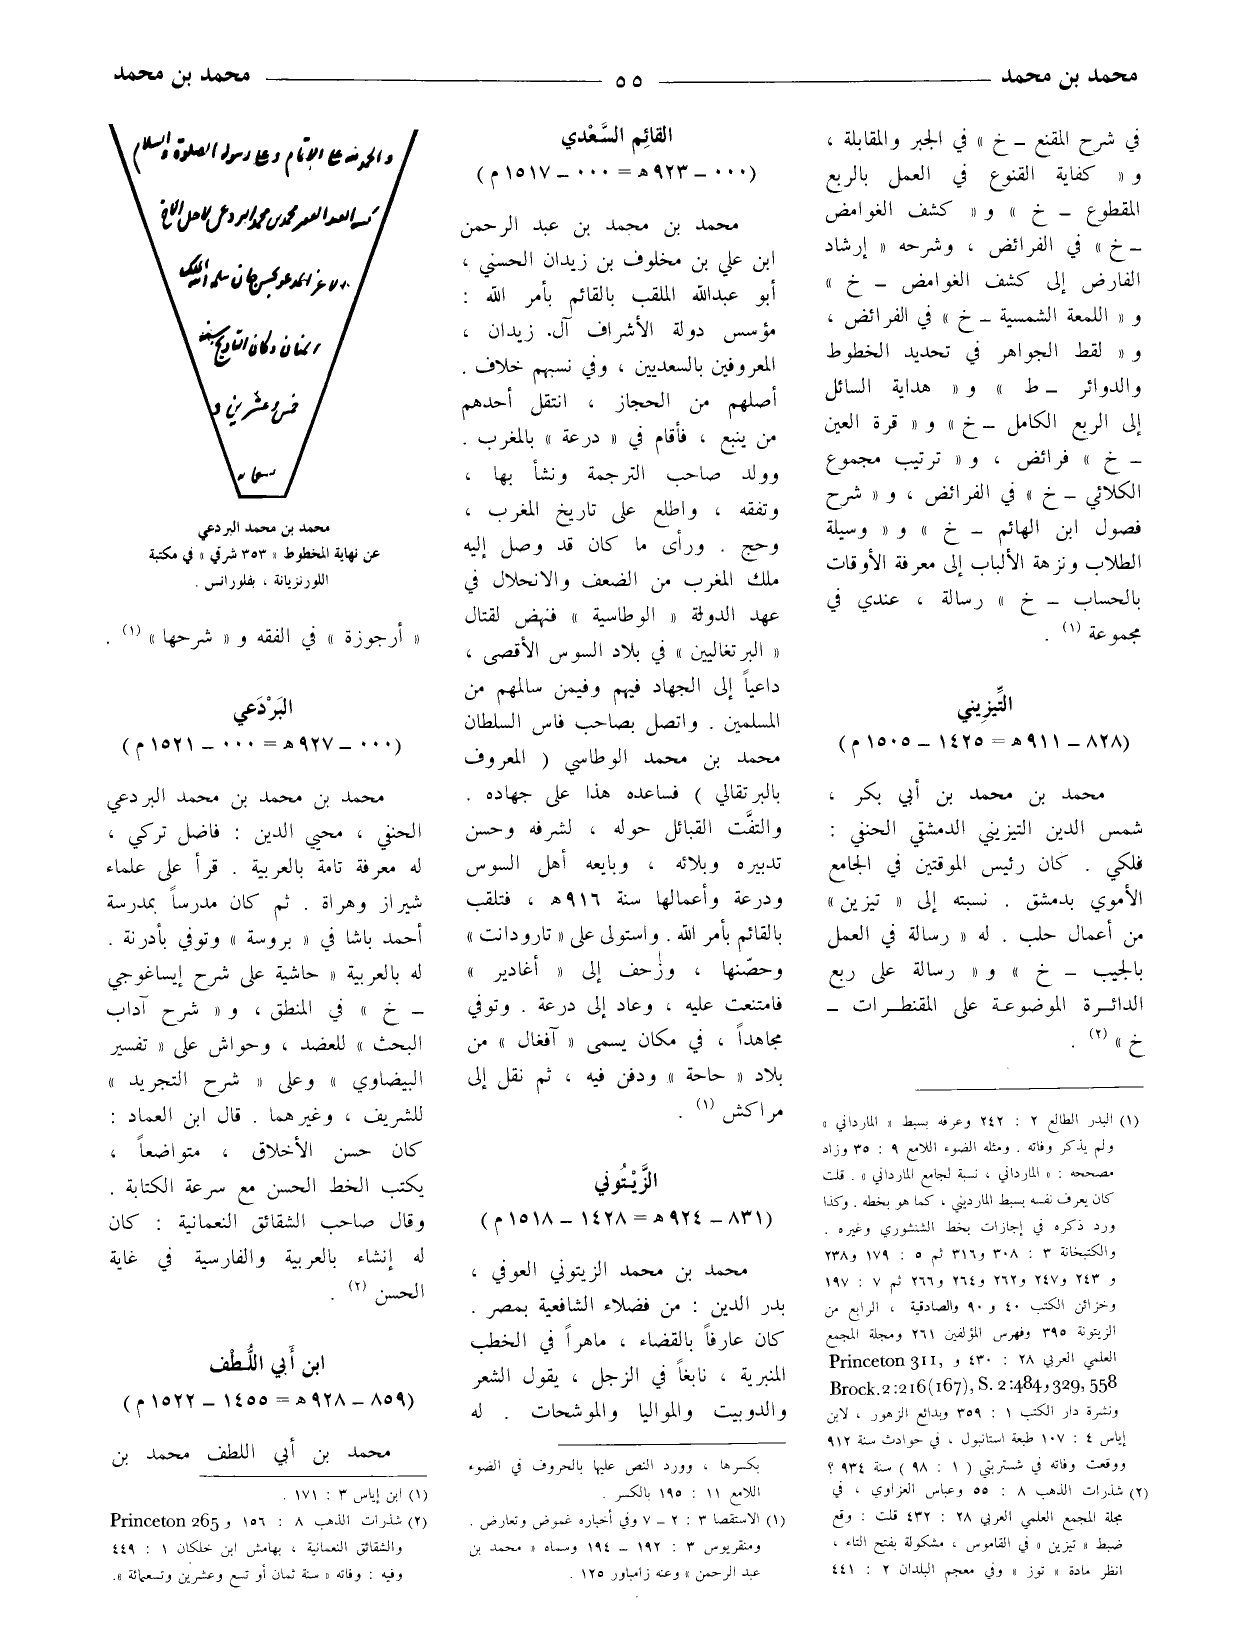 محمد بن محمد
٥٥
محمد بن محمد
في شرح المقنع ـ خ » في الجبر والمقابلة ،
و « كفاية القنوع في العمل بالربع
المقطوع ـ خ » و « كشف الغوامض
ـ خ » في الفرائض ، وشرحه « إرشاد
الفارض إلى كشف الغوامض ـ خ »
و « اللمعة الشمسية ـ خ » في الفرائض ،
و « لقط الجواهر في تحديد الخطوط
والدوائر ـ ط » و « هداية السائل
إلى الربع الكامل ـ خ » و « قرة العين
ـ خ » فرائض ، و « ترتيب مجموع
الكلائي ـ خ » في الفرائض ، و « شرح
فصول ابن الهائم ـ خ » و « وسيلة
الطلاب ونزهة الألباب إلى معرفة الأوقات
بالحساب ـ خ » رسالة ، عندي في
مجموعة (١) .
التِّيزِيني
(٨٢٨ ـ ٩١١ هـ = ١٤٢٥ ـ ١٥٠٥ م)
محمد بن محمد بن أبي بكر ،
شمس الدين التيزيني الدمشقي الحنفي :
فلكي . كان رئيس الموقتين في الجامع
الأموي بدمشق . نسبته إلى « تيزين »
من أعمال حلب . له « رسالة في العمل
بالجيب ـ خ » و « رسالة على ربع
الدائـرة الموضوعـة على المقنطـرات ـ
خ » (٢) .
(١) البدر الطالع ٢ : ٢٤٢ وعرفه بسبط « المارداني »
ولم يذكر وفاته . ومثله الضوء اللامع ٩ : ٣٥ وزاد
مصححه : « المارداني ، نسبة لجامع المارداني » . قلت
كان يعرف نفسه بسبط المارديني ، كما هو بخطه . وكذا
ورد ذكره في إجازات بخط الشنشوري وغيره .
والكتبخانة ٣ : ٣٠٨ و٣١٦ ثم ٥ : ١٧٩ و٢٣٨
و ٢٤٣ و٢٤٧ و٢٦٢ و٢٦٤ و٢٦٦ ثم ٧ : ١٩٧
وخزائن الكتب ٤٠ و ٩٠ والصادقية ، الرابع من
الزيتونة ٣٩٥ وفهرس المؤلفين ٢٦١ ومجلة المجمع
العلمي العربي ٢٨ : ٤٣٠ و Princeton 311,
Brock.2:216(167), S. 2:484و329, 558
ونشرة دار الكتب ١ : ٣٥٩ وبدائع الزهور ، لابن
إياس ٤ : ١٠٧ طبعة استانبول ، في حوادث سنة ٩١٢
ووقعت وفاته في شستربتي ( ١ : ٩٨ ) سنة ٩٣٤ ؟
(٢) شذرات الذهب ٨ : ٥٥ وعباس العزاوي ، في
مجلة المجمع العلمي العربي ٢٨ : ٤٣٢ قلت : وقع
ضبط « تيزين » في القاموس ، مشكولة بفتح التاء ،
انظر مادة « توز » وفي معجم البلدان ٢ : ٤٤١
القائِم السَّعْدي
(٠٠٠ ـ ٩٢٣ هـ = ٠٠٠ ـ ١٥١٧ م)
محمد بن محمد بن عبد الرحمن
ابن علي بن مخلوف بن زيدان الحسني ،
أبو عبدالله الملقب بالقائم بأمر الله :
مؤسس دولة الأشراف آل. زيدان ،
المعروفين بالسعديين ، وفي نسبهم خلاف .
أصلهم من الحجاز ، انتقل أحدهم
من ينبع ، فأقام في « درعة » بالمغرب .
وولد صاحب الترجمة ونشأ بها ،
وتفقه ، واطلع على تاريخ المغرب ،
وحج . ورأى ما كان قد وصل إليه
ملك المغرب من الضعف والانحلال في
عهد الدولة « الوطاسية » فنهض لقتال
« البرتغاليين » في بلاد السوس الأقصى ،
داعياً إلى الجهاد فيهم وفيمن سالمهم من
المسلمين . واتصل بصاحب فاس السلطان
محمد بن محمد الوطاسي ( المعروف
بالبرتقالي ) فساعده هذا على جهاده .
والتفَّت القبائل حوله ، لشرفه وحسن
تدبيره وبلائه ، وبايعه أهل السوس
ودرعة وأعمالها سنة ٩١٦هـ ، فتلقب
بالقائم بأمر الله. واستولى على « تارودانت »
وحصّنها ، وزحف إلى « أغادير »
فامتنعت عليه ، وعاد إلى درعة . وتوفي
مجاهداً ، في مكان يسمى « آفغال » من
بلاد « حاحة » ودفن فيه ، ثم نقل إلى
مراكش (١) .
الزَّيْتُوني
(٨٣١ ـ ٩٢٤ هـ = ١٤٢٨ ـ ١٥١٨ م)
محمد بن محمد الزيتوني العوفي ،
بدر الدين : من فضلاء الشافعية بمصر .
كان عارفاً بالقضاء ، ماهراً في الخطب
المنبرية ، نابغاً في الزجل ، يقول الشعر
والدوبيت والمواليا والموشحات . له
بكسرها ، وورد النص عليها بالحروف في الضوء
اللامع ١١ : ١٩٥ بالكسر .
(١) الاستقصا ٣ : ٢ ـ ٧ وفي أخباره غموض وتعارض .
ومنقريوس ٣ : ١٩٢ ـ ١٩٤ وسماه « محمد بن
عبد الرحمن » وعنه زامباور ١٢٥ .
محمد بن محمد البردعي
عن نهاية المخطوط « ٣٥٣ شرقي » في مكتبة
اللورنزيانة ، بفلورانس .
« أرجوزة » في الفقه و « شرحها » (١) .
البَرْدَعي
(٠٠٠ ـ ٩٢٧ هـ = ٠٠٠ ـ ١٥٢١ م)
محمد بن محمد بن محمد البردعي
الحنفي ، محيي الدين : فاضل تركي ،
له معرفة تامة بالعربية . قرأ على علماء
شيراز وهراة . ثم كان مدرساً بمدرسة
أحمد باشا في « بروسة » وتوفي بأدرنة .
له بالعربية « حاشية على شرح إيساغوجي
ـ خ » في المنطق ، و « شرح آداب
البحث » للعضد ، وحواش على « تفسير
البيضاوي » وعلى « شرح التجريد »
للشريف ، وغيرهما . قال ابن العماد :
كان حسن الأخلاق ، متواضعاً ،
يكتب الخط الحسن مع سرعة الكتابة .
وقال صاحب الشقائق النعمانية : كان
له إنشاء بالعربية والفارسية في غاية
الحسن (٢) .
ابن أَبي اللُّطْف
(٨٥٩ ـ ٩٢٨ هـ = ١٤٥٥ ـ ١٥٢٢ م)
محمد بن أبي اللطف محمد بن
(١) ابن إياس ٣ : ١٧١ .
(٢) شذرات الذهب ٨ : ١٥٦ و Princeton 265
والشقائق النعمانية ، بهامش ابن خلكان ١ : ٤٤٩
وفيه : وفاته « سنة ثمان أو تسع وعشرين وتسعمائة ».